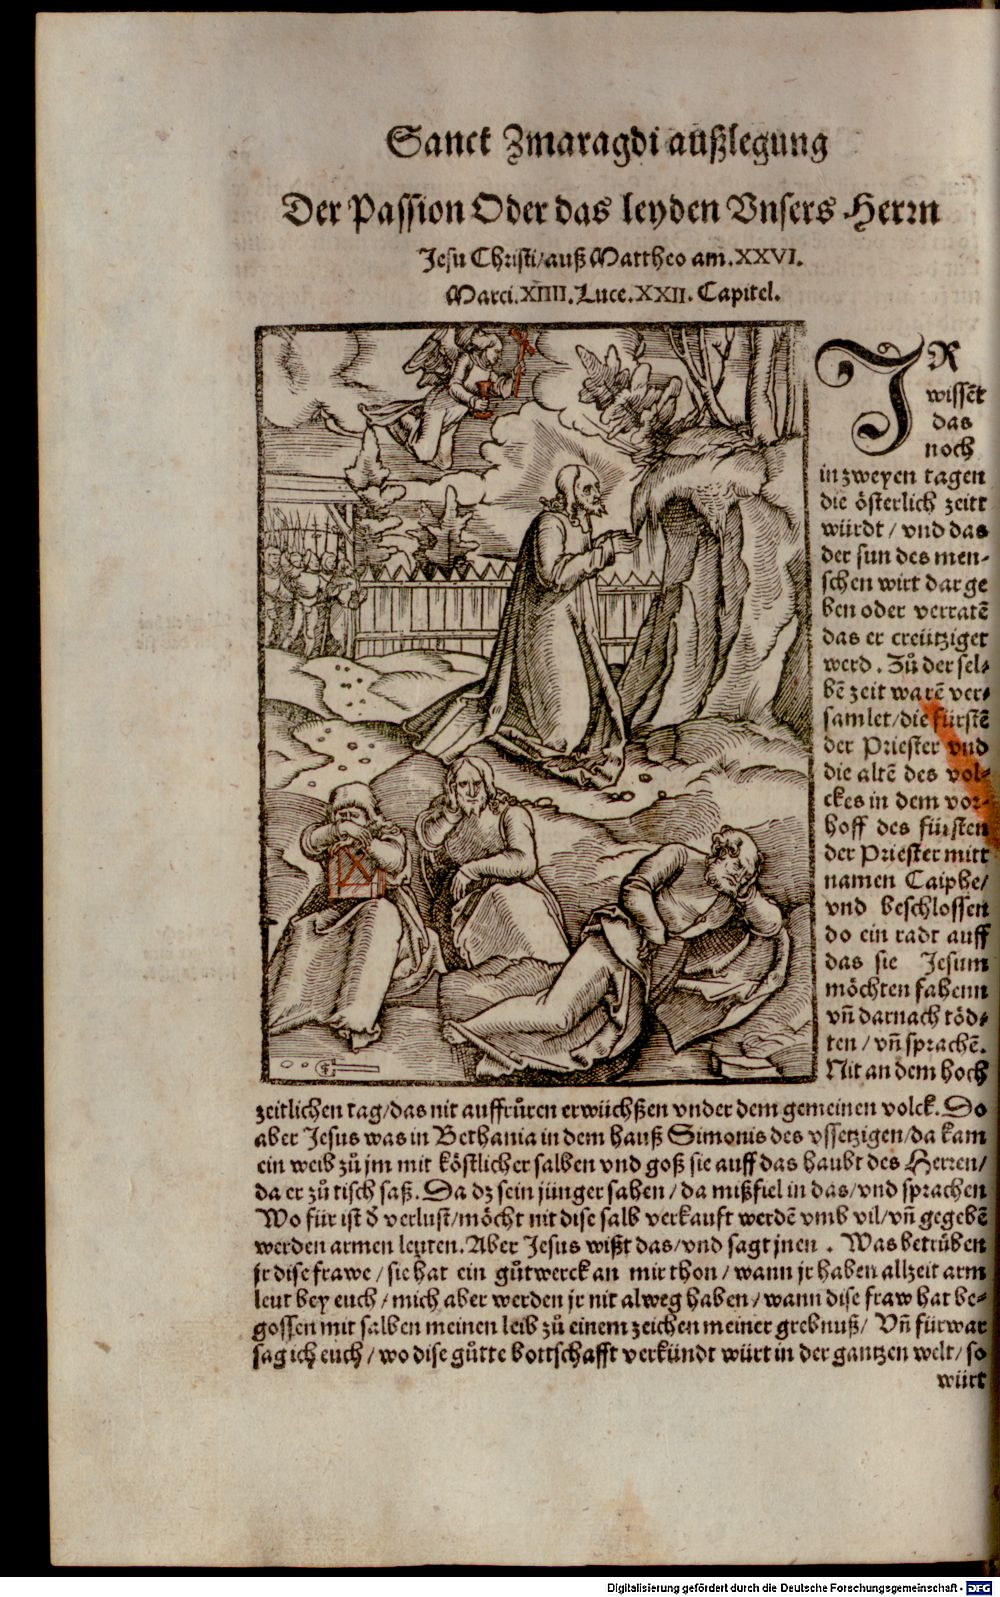 Sanct Zmaragdi außlegung
Der Passion Oder das leyden Vnsers Herrn
Jesu Christi/auß Mattheo am.XXVI.
Marci.XIIII.Luce.XXII.Capitel.
IR
wissẽt
das
noch
in zweyen tagen
die österlich zeitt
würdt/vnd das
der sun des men-
schen wirt darge
ben oder verratẽ
das er creütziget
werd. Zů der sel-
bẽ zeit warẽ ver-
samlet/die fürstẽ
der Priester vnd
die altẽ des vol-
ckes in dem vor-
hoff des fürsten
der Priester mitt
namen Caiphe/
vnd beschlossen
do ein radt auff
das sie Jesum
möchten fahenn
vñ darnach töd-
ten/vñ sprachẽ.
Nit an dem hoch
zeitlichen tag/das nit auffrůren erwüchßen vnder dem gemeinen volck. Do
aber Jesus was in Bethania in dem hauß Simonis des vssetzigen/da kam
ein weib zů jm mit köstlicher salben vnd goß sie auff das haubt des Herren/
da er zů tisch saß. Da dz sein jünger sahen/da mißfiel in das/vnd sprachen
Wo für ist d' verlust/möcht nit dise salb verkauft werdẽ vmb vil/vñ gegebẽ
werden armen leyten. Aber Jesus wißt das/vnd sagt jnen. Was betrůben
jr dise frawe/sie hat ein gůtwerck an mir thon/wann jr haben allzeit arm
leut bey euch/mich aber werden jr nit alweg haben/wann dise fraw hat be-
gossen mit salben meinen leib zů einem zeichen meiner grebnuß/ Vñ fürwar
sag ich euch/wo dise gůtte bottschafft verkündt würt in der gantzen welt/so
würt
Digitalisierung gefördert durch die Deutsche Forschungsgemeinschaft - DFG